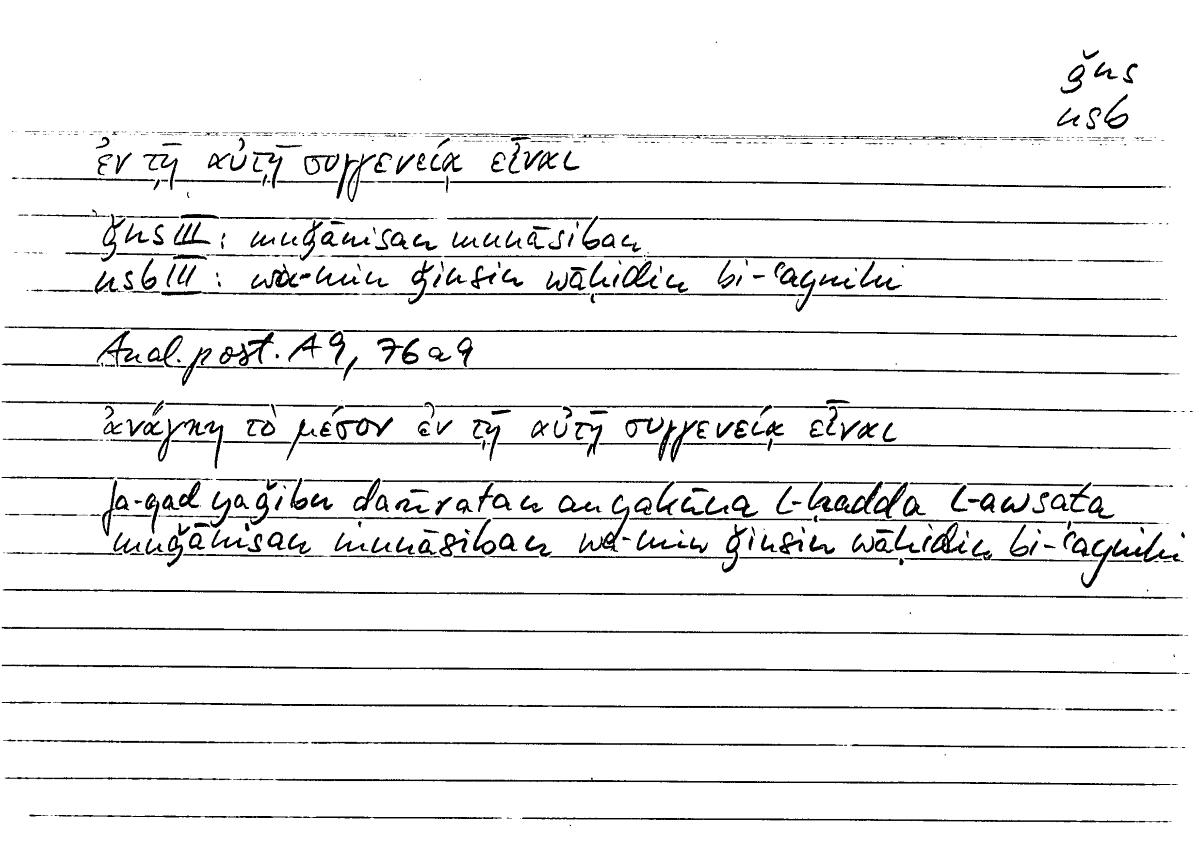 ǧns
nsb
ἐν τῇ αὐτῇ συγγενείᾳ εἶναι
ǧns III: muǧānisan munāsiban
nsb III: wa-min ǧinsin wāḥidin bi-ʿaynihi
Anal. post. A 9, 76 a 9
ἀνάγκη τὸ μέσον ἐν τῇ αὐτῇ συγγενείᾳ εἶναι
fa-qad yaǧibu ḍarūratan an yakūna l-ḥadda l-awsaṭa
muǧānisan munāsiban wa-min ǧinsin wāḥidin bi-ʿaynihi